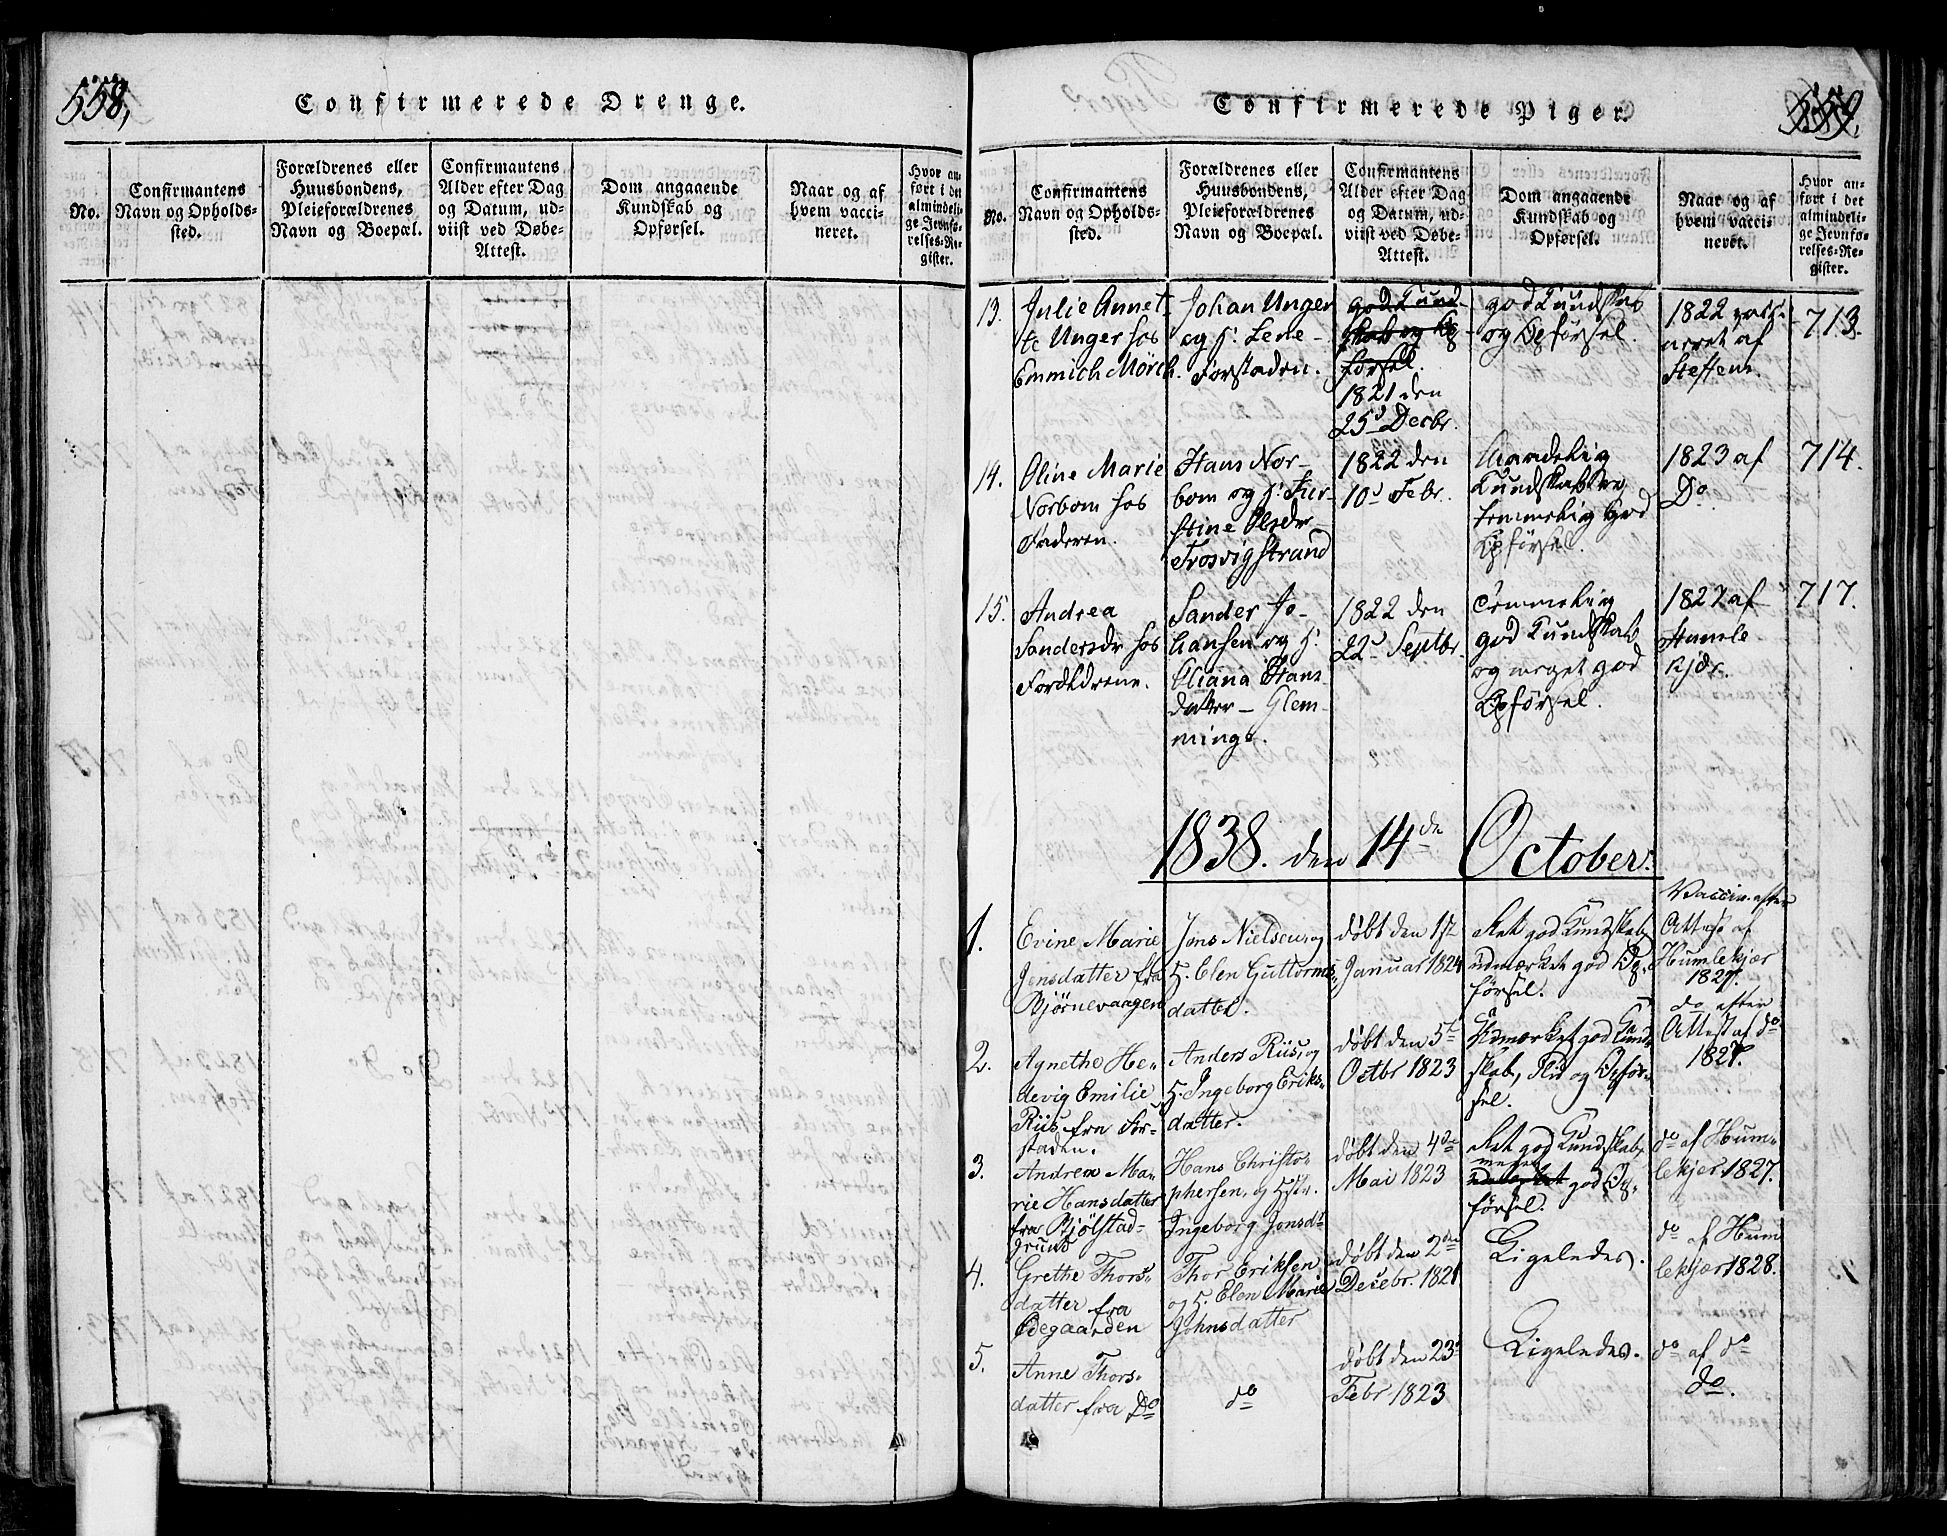 558,
Confirmerede Drenge.
No.
Confirmantens
Navn og Opholds-
sted.
Forældrenes eller
Huusbondens,
Pleieforældrenes
Navn og Boepæl.
Confirmantens
Alder efter Dag
og Datum, ud-
viist ved Døbe-
Attest.
Dom angaaende
Kundskab og
Opførsel.
Naar og af
hvem vacci-
neret.
Hvor an-
ført i det
almindeli-
ge Jevnfø-
relses-Re-
gister.
Confirmerede Piger.
559.
No.
Confirmantens
Navn og Opholds-
sted.
Forældrenes eller
Huusbondens,
Pleieforældrenes
Navn og Boepæl.
Confirmantens
Alder efter Dag
og Datum, ud-
viist ved Døbe-
Attest.
Dom angaaende
Kundskab og
Opførsel.
Naar og af
hvem vacci-
neret.
Hvor an-
ført i det
almindeli-
ge Jevnfø-
relses-Re-
gister.
13.
Julie Annet-
te Unger hos
Emmich Mörch.
Johan Unger
og H. Lene
Forstaden.
god Kund-
skab og Op-
førsel.
1821 den
25d Decbr.
god Kundskab
og Opførsel.
1822 vacci-
neret af
Steffens
713.
14.
Oline Marie
Norbom hos
Faderen.
Hans Nor-
bom og H. Kier-
stine Olsdr
Trosvigstrand
1822 den
10d Febr.
Maadelig
Kundskab og
temmelig God
Opførsel.
1823 af
Do
714.
15.
Andrea
Sandersdr hos
Forældrene.
Sander Jo-
hansen og H.
Oliana Hans-
datter - Glem-
minge.
1822 den
22d Septbr.
Temmelig
god Kundskab
og meget god
Opførsel.
1827 af
Humle
kjær.
717.
1838. den 14de October.
1.
Evine Marie
Jensdatter fra
Bjørnevaagen
Jens Nielsen, og
H. Elen Guttorms-
datter.
døbt den 1ste
Januar 1824
Ret god Kundskab,
udmærket god Op-
førsel.
Vaccin. efter
Attest af
Humlekjær
1827.
2.
Agnethe He-
devig Emilie
Riis, fra For-
staden.
Anders Riis, og
H. Ingeborg Eriks-
datter.
døbt den 5te
Octbr 1823
Udmærket god Kund-
skab, Flid og Opfør-
sel.
do efter
Attest af do
1827.
3.
Andrea Ma-
rie Hansdatter
fra Bjølstad-
grund
Hans Christo-
phersen, og Hstr.
Ingeborg Jensdt
døbt den 4de
Mai 1823
Ret god Kundskab,
meget
udmærket god Op-
førsel.
do af Hum-
lekjær 1827.
4.
Grethe Thors-
datter fra
Ødegaarden
Thor Eriksen,
og H. Elen Marie
Johnsdatter
døbt den 2den
Decebr. 1821
Ligeledes.
do af Hum
lekjær 1828.
5.
Anne Thors-
datter fra Do
do
døbt den 23d
Febr 1823
Ligeledes.
do af do
do.